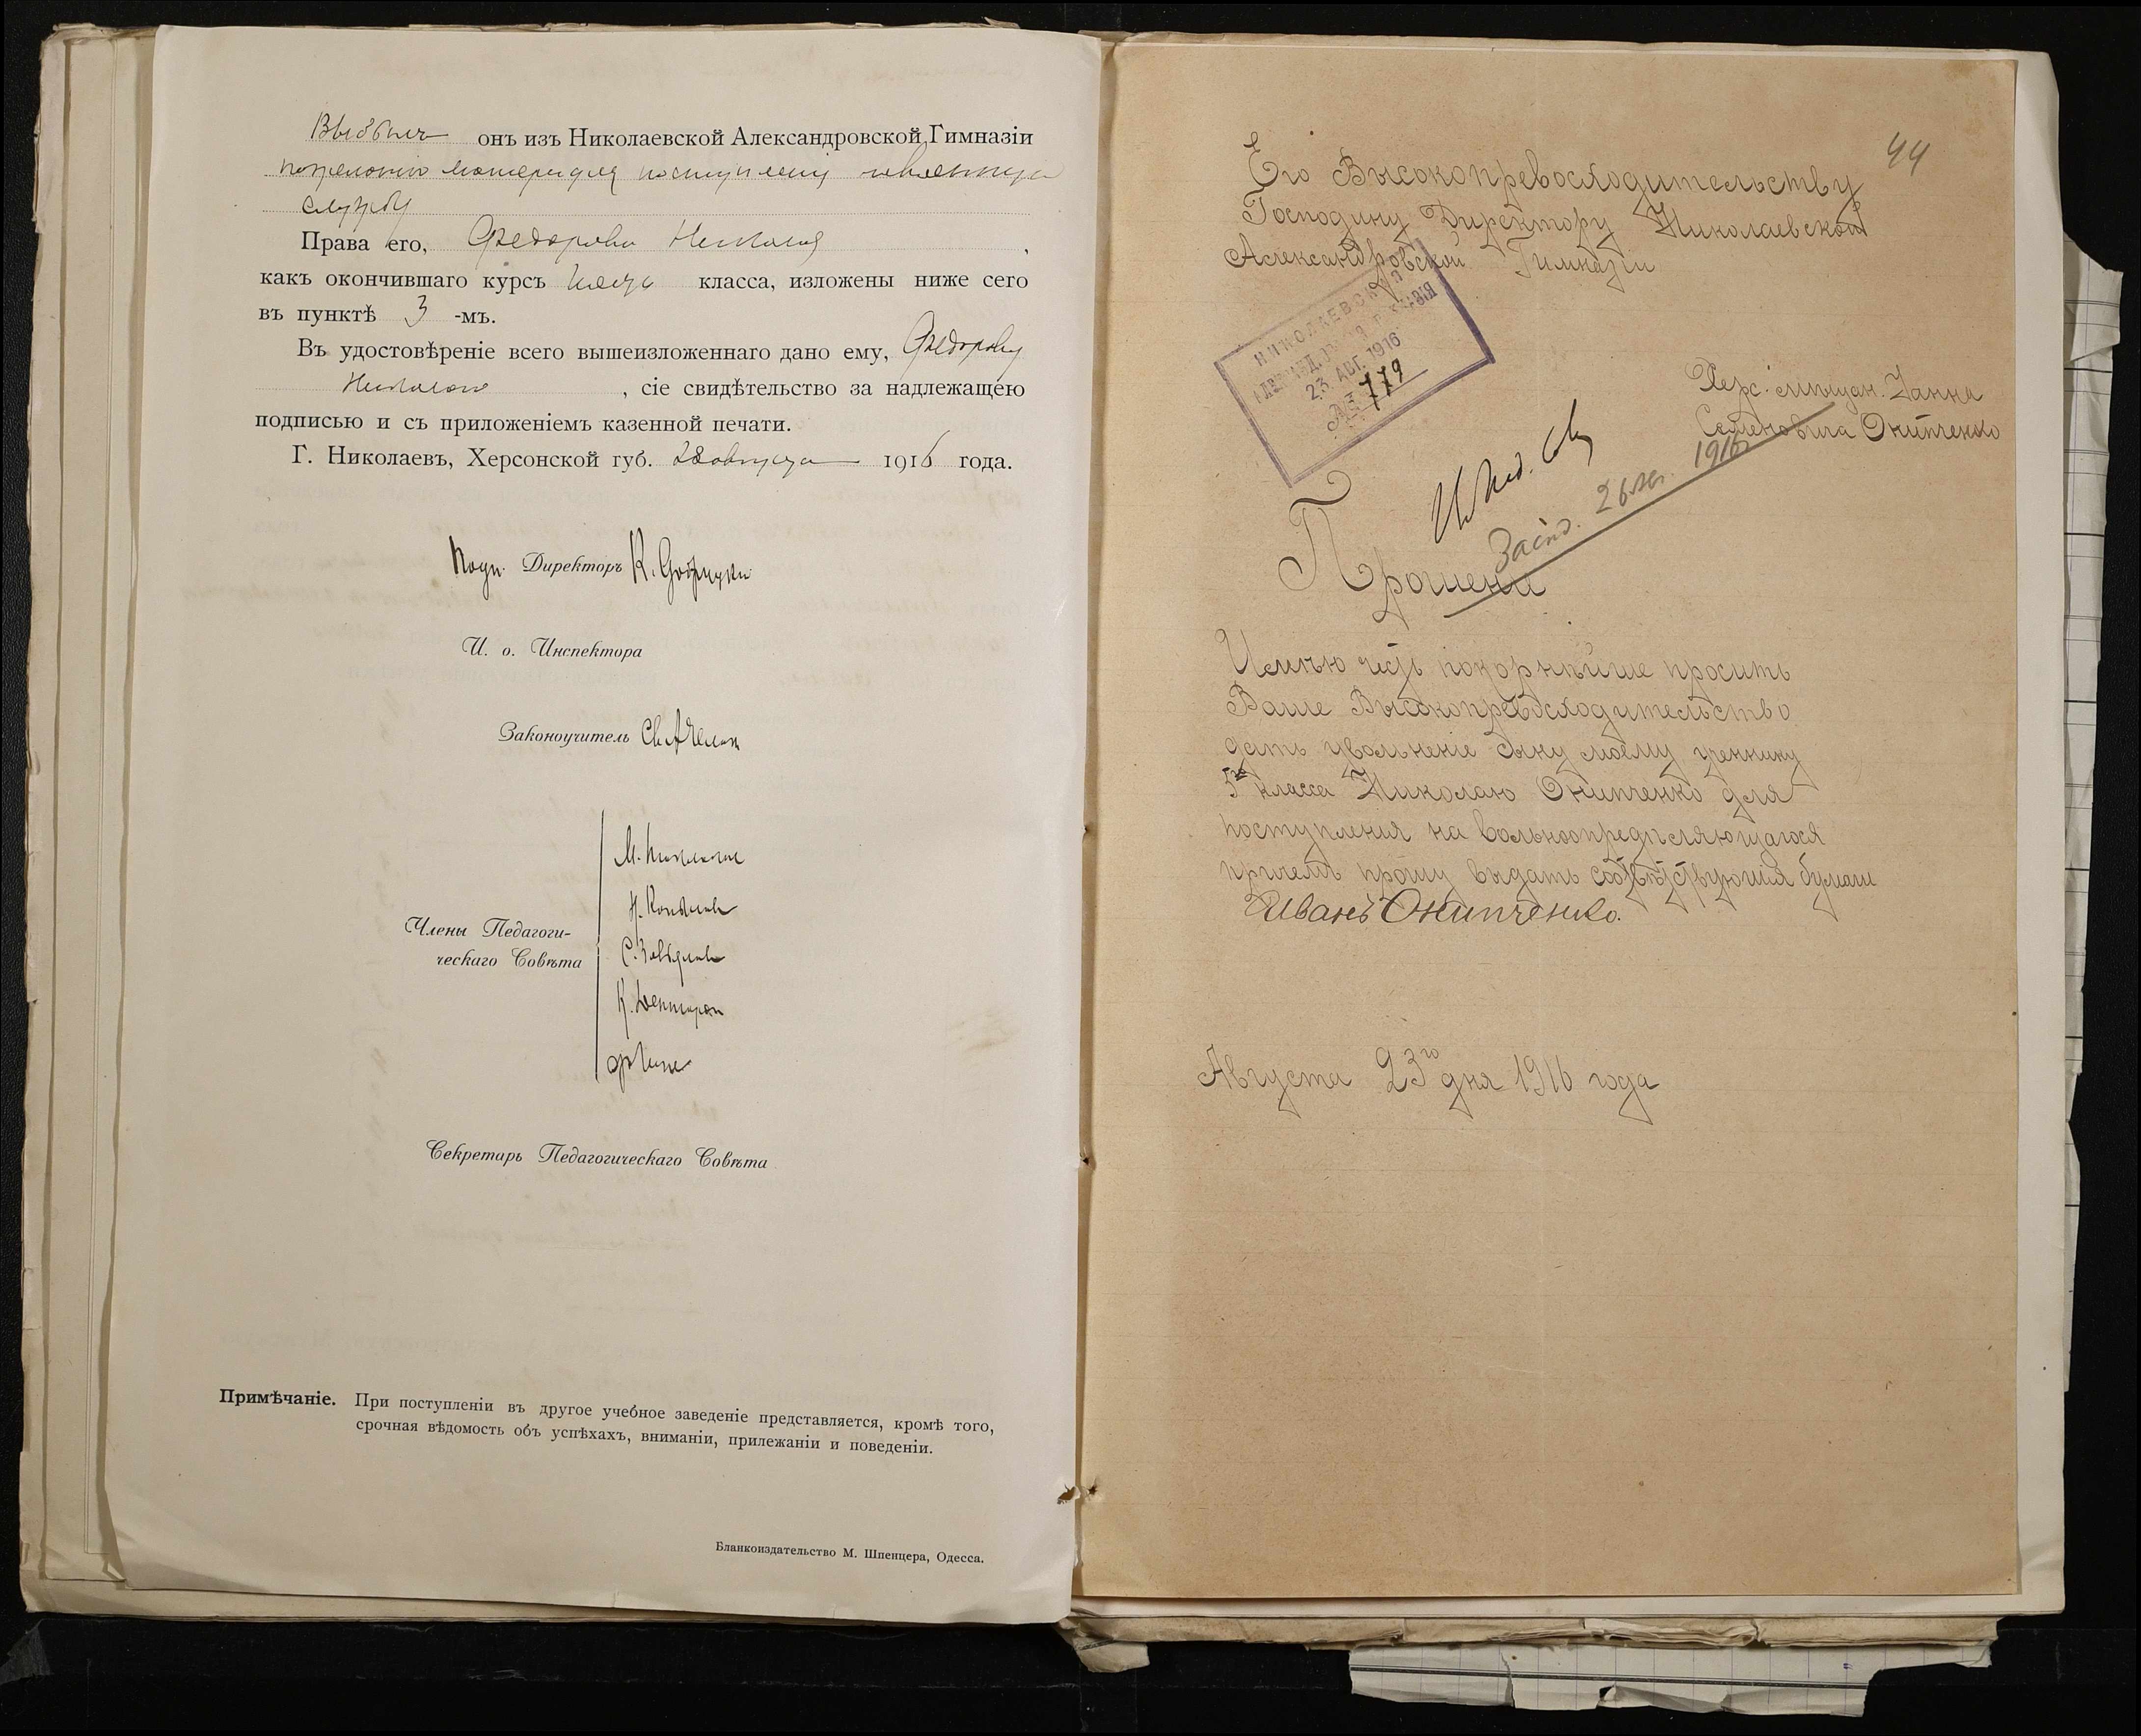 Выбылъ онъ изъ Николаевской Александровской Гимназіи
по желанію матери для поступленія
службу
Права его, Федорова Николая,
какъ окончившаго курсъ класса, изложены ниже сего
въ пунктѣ 3 -мъ.
Въ удостовѣреніе всего вышеизложеннаго дано ему, Федорову
Николаю, сіе свидѣтельство за надлежащею
подписью и съ приложеніемъ казенной печати.
Г. Николаевъ, Херсонской губ. августа 1916 года.
Подп. Директоръ К.
И. о. Инспектора
Законоучитель
Члены Педагоги-
ческаго Совѣта
Секретарь Педагогическаго Совѣта
Примѣчаніе. При поступленіи въ другое учебное заведеніе представляется, кромѣ того,
срочная вѣдомость объ успѣхахъ, вниманіи, прилежаніи и поведеніи.
Бланкоиздательство М. Шпенцера, Одесса.
44
Его Высокопревосходительству
Господину Директору Николаевской
Александровской Гимназіи
НИКОЛАЕВСКАЯ
23 АВГ. 1916
№ 779
Херс. мѣщан. Ивана
Семеновича Онипченко
26 1916
Прошение
Имѣю честь покорнѣйше просить
Ваше Высокопревосходительство
дать увольненіе сыну моему ученику
5го класса Николаю Онипченко для
поступления на вольноопредѣляющагося
причемъ прошу выдать соотвѣтствующія бумаги
Иванъ Онипченко.
Августа 23го дня 1916 года